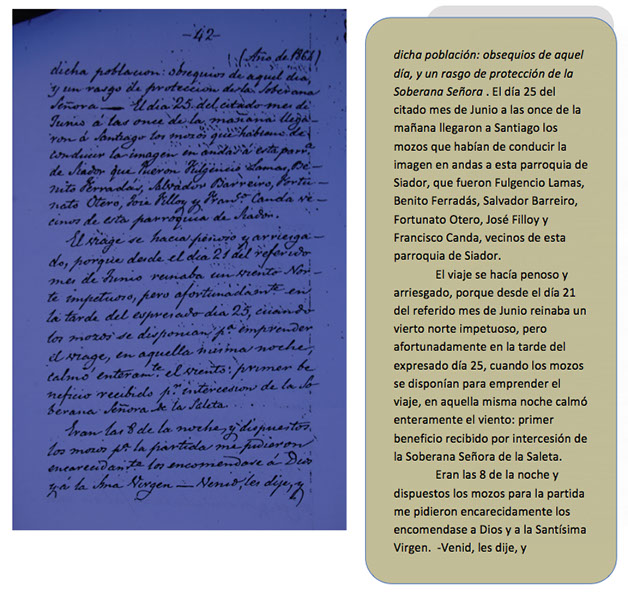 -42-
(Año de 1864)
dicha poblacion: obsequios de aquel dia,
y un rasgo de proteccion de la Soberana
Señora — El dia 25 del citado mes de
Junio á las once de la mañana llega-
ron á Santiago los mozos que habian de
conducir la imagen en andas á esta parrq.ª
de Siador que fueron Fulgencio Lamas, Be-
nito Ferradás, Salvador Barreiro, Fortu-
nato Otero, José Filloy y Fran.co Canda ve-
cinos de esta parroquia de Siador.
El viage se hacia penoso y arriesga-
do, porque desde el dia 21 del referido
mes de Junio reinaba un viento Nor-
te impetuoso, pero afortunadam.te en
la tarde del espresado dia 25, cuando
los mozos se disponian p.ª emprender
el viage, en aquella misma noche,
calmó enteram.te el viento: primer be-
neficio recibido p.r intercesion de la So-
berana Señora de la Saleta.
Eran las 8 de la noche, y dispuestos
los mozos p.ª la partida me pidieron
encarecidam.te los encomendase á Dios
y á la Sma Virgen — Venid, les dije, y
dicha población: obsequios de aquel
día, y un rasgo de protección de la
Soberana Señora . El día 25 del
citado mes de Junio a las once de la
mañana llegaron a Santiago los
mozos que habían de conducir la
imagen en andas a esta parroquia de
Siador, que fueron Fulgencio Lamas,
Benito Ferradás, Salvador Barreiro,
Fortunato Otero, José Filloy y
Francisco Canda, vecinos de esta
parroquia de Siador.
El viaje se hacía penoso y
arriesgado, porque desde el día 21
del referido mes de Junio reinaba un
vierto norte impetuoso, pero
afortunadamente en la tarde del
expresado día 25, cuando los mozos
se disponían para emprender el
viaje, en aquella misma noche calmó
enteramente el viento: primer
beneficio recibido por intercesión de
la Soberana Señora de la Saleta.
Eran las 8 de la noche y
dispuestos los mozos para la partida
me pidieron encarecidamente los
encomendase a Dios y a la Santísima
Virgen. -Venid, les dije, y